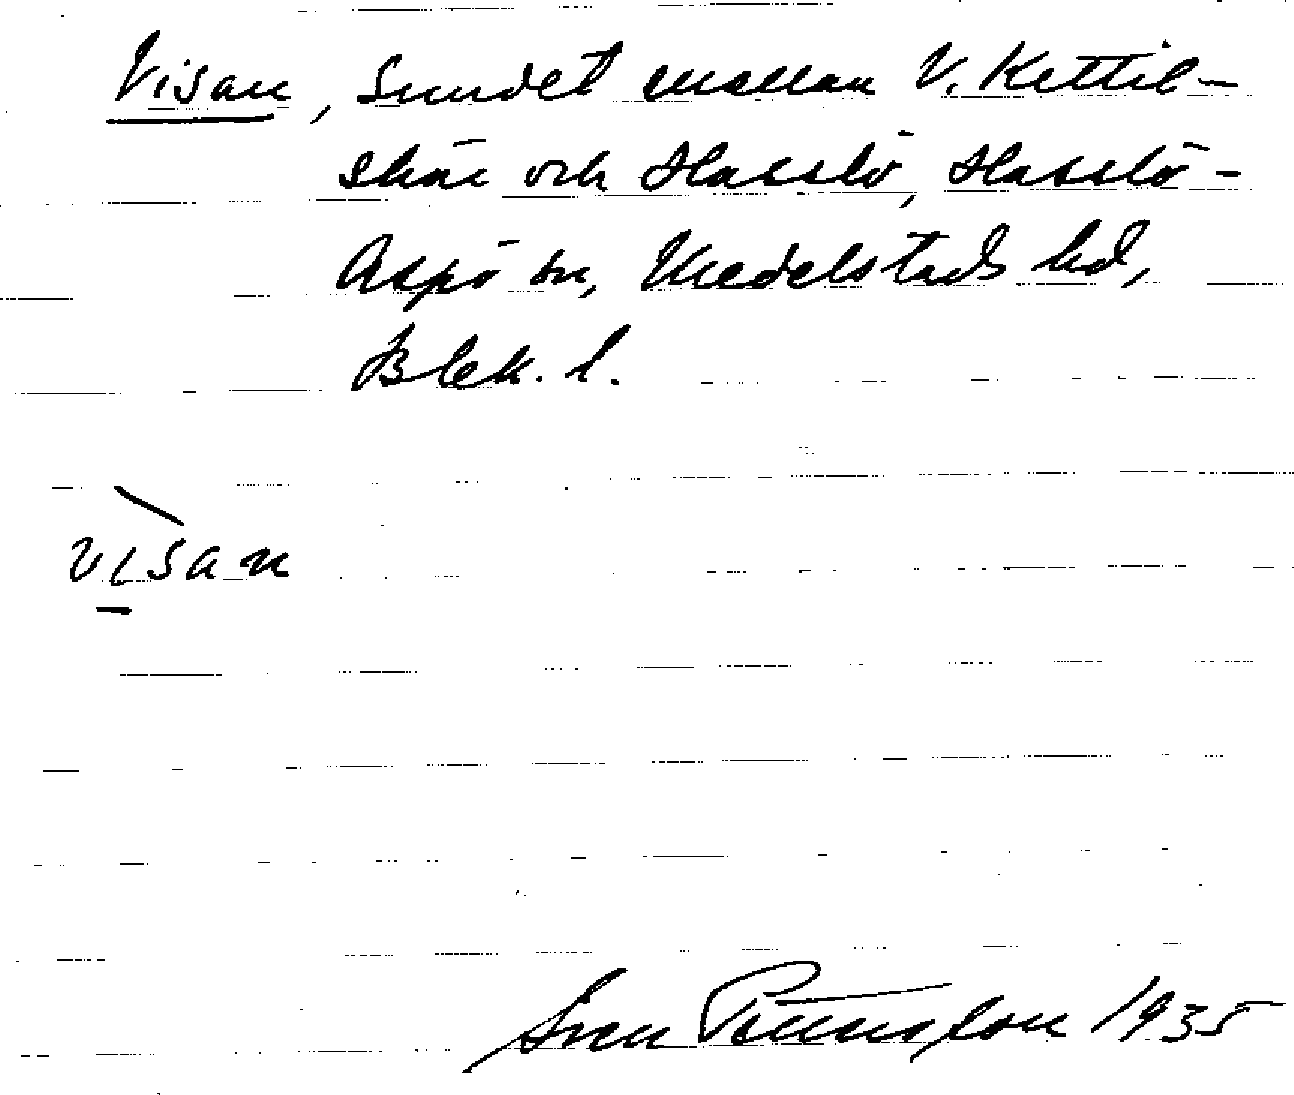 Visan, Sundet mellan V. Kettil-
skär och Hasslö, Hasslö-
Aspö sn, Medelstads hd,
Blek. l.
vìsan
Sven 1935